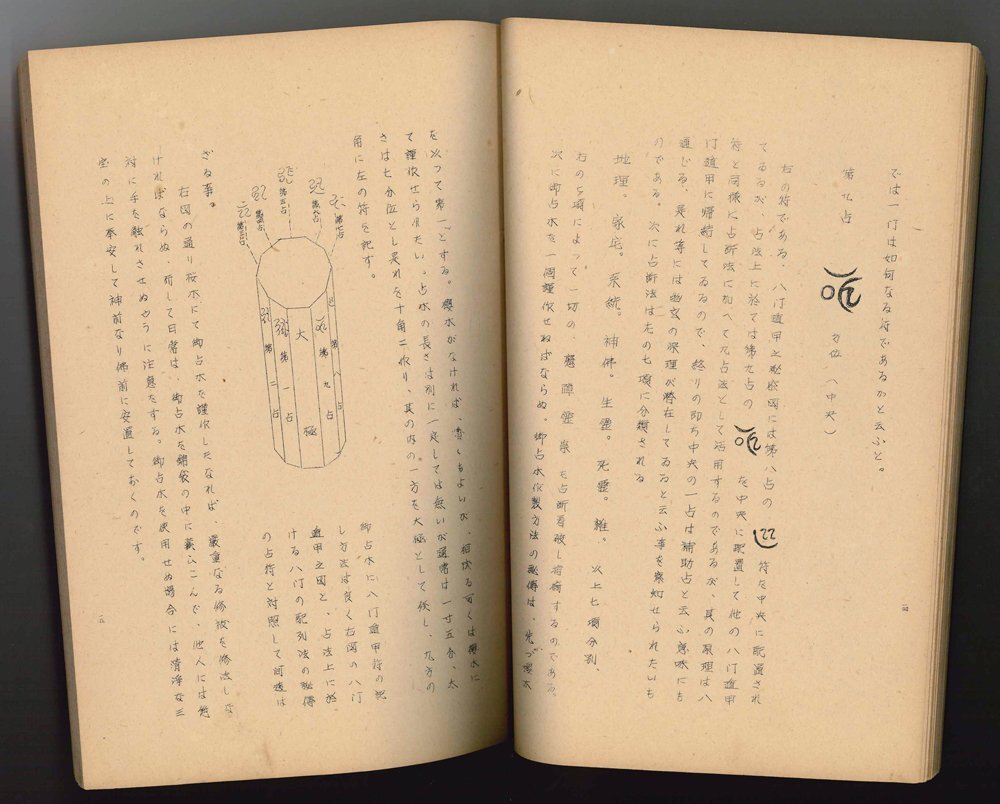 では一門は如何なる符であるかと云ふと。
第九占
方位(中央)
右の符である、八門遁甲之秘密図には第八占の 符を中央に配置され
てゐるが、占法上に於ては第九占の を中央に配置して他の八門遁甲
符と同様に占断法に加へて九占法として活用するのであるが、其の原理は八
門遁甲に帰結してゐるので、終りの即ち中央の一占は補助占と云ふ意味にも
通じる、是れ等には幽玄の原理が潜在してゐると云ふ事を察知せられたいも
のである。次に占断法は左の七項に分類される
地理。家宅。系統。神佛。生霊。死霊。雑。以上七項分別、
右の七項によって一切の悪障霊祟を占断看破し指摘するのである、
次に御占木を一個謹作せねばならぬ。御占木作製方法の秘傳は、先づ桜木
を以つて第一とする。櫻木がなければ、
て謹作せられたい。占木の長さは別に一定しては無いが通常は一寸五分、太
さは七分位とし是れを十角に作り、其の内の一方を大極として残し、九方の
角に左の符を記す。
第七占
第九占
第五占
大極
第一占
第二占
第九占
第八占
御占木に八門遁甲符の記
し方法は良く右図の八門
遁甲之図と、占法上に於
ける八門の配列法の秘傳
の占符と対照して間違は
ざる事。
右図の通り桜木にて御占木を謹作したなれば、厳重なる修祓を修法しな
ければならぬ、而して日常は、御占木を錦袋の中に蔵ひこんで、他人には絶
対に手を触れさせぬやうに注意をする。御占木を使用せぬ場合には清浄な三
宝の上に奉安して神前なり佛前に安置しておくのです。